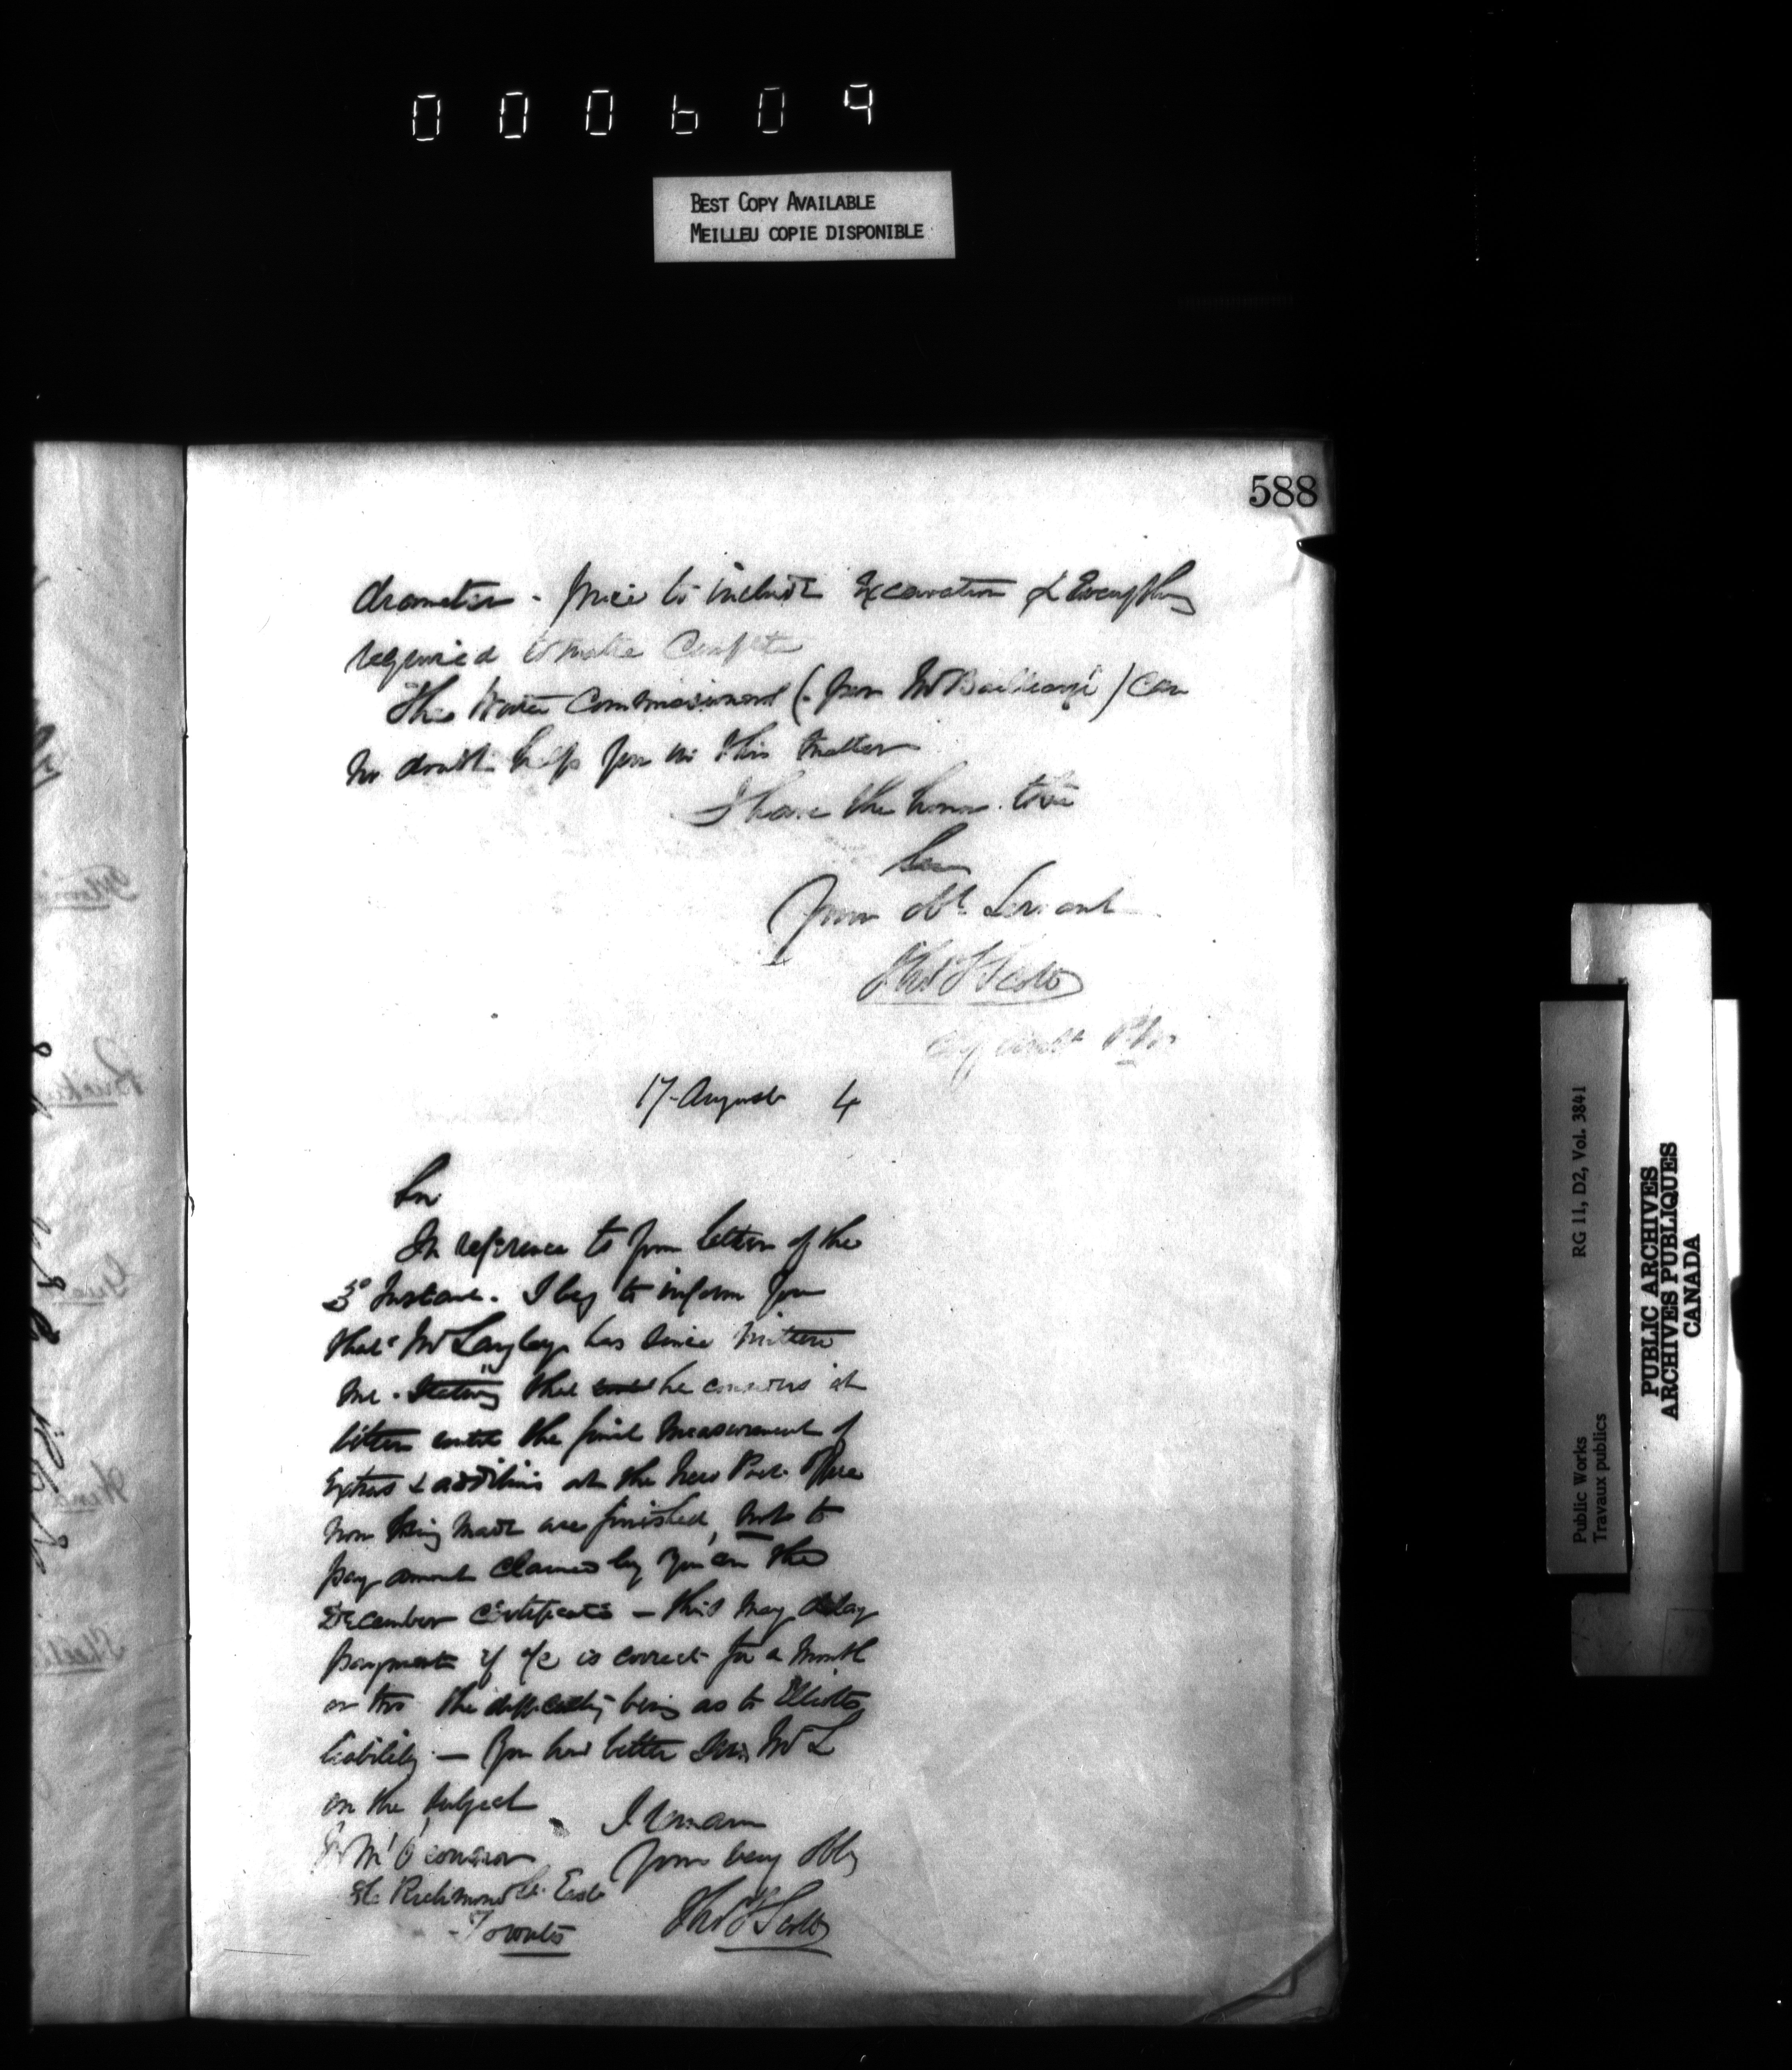 000609
BEST COPY AVAILABLE
MEILLEU COPIE DISPONIBLE
588
diameter - price to include Excavation & Everything
required to make Complete
The Water Commissioners (from Mr ) can
no doubt help you in this matter
I have the honor to be
Sir
Your Obt Servant
Thos S Scott
17 August 4
Sir
In reference to your letter of the
3d Instant. I beg to inform you
that Mr Langley has since written
me. Stating that he considers it
better until the final measurement of
Extras & additions at the New Post Office
now being made are finished, not to
pay amount claimed by you on the
December Certificate – this may delay
payment if a/c is correct for a month
or two the difficulty being as to Elliotts
liability – You had better see Mr L
on the subject
I remain
Your very Obly
Thos S Scott
Mr O'Connor
Richmond St. East
Toronto
RG 11, D2, Vol. 3841
Public Works
Travaux publics
PUBLIC ARCHIVES
ARCHIVES PUBLIQUES
CANADA